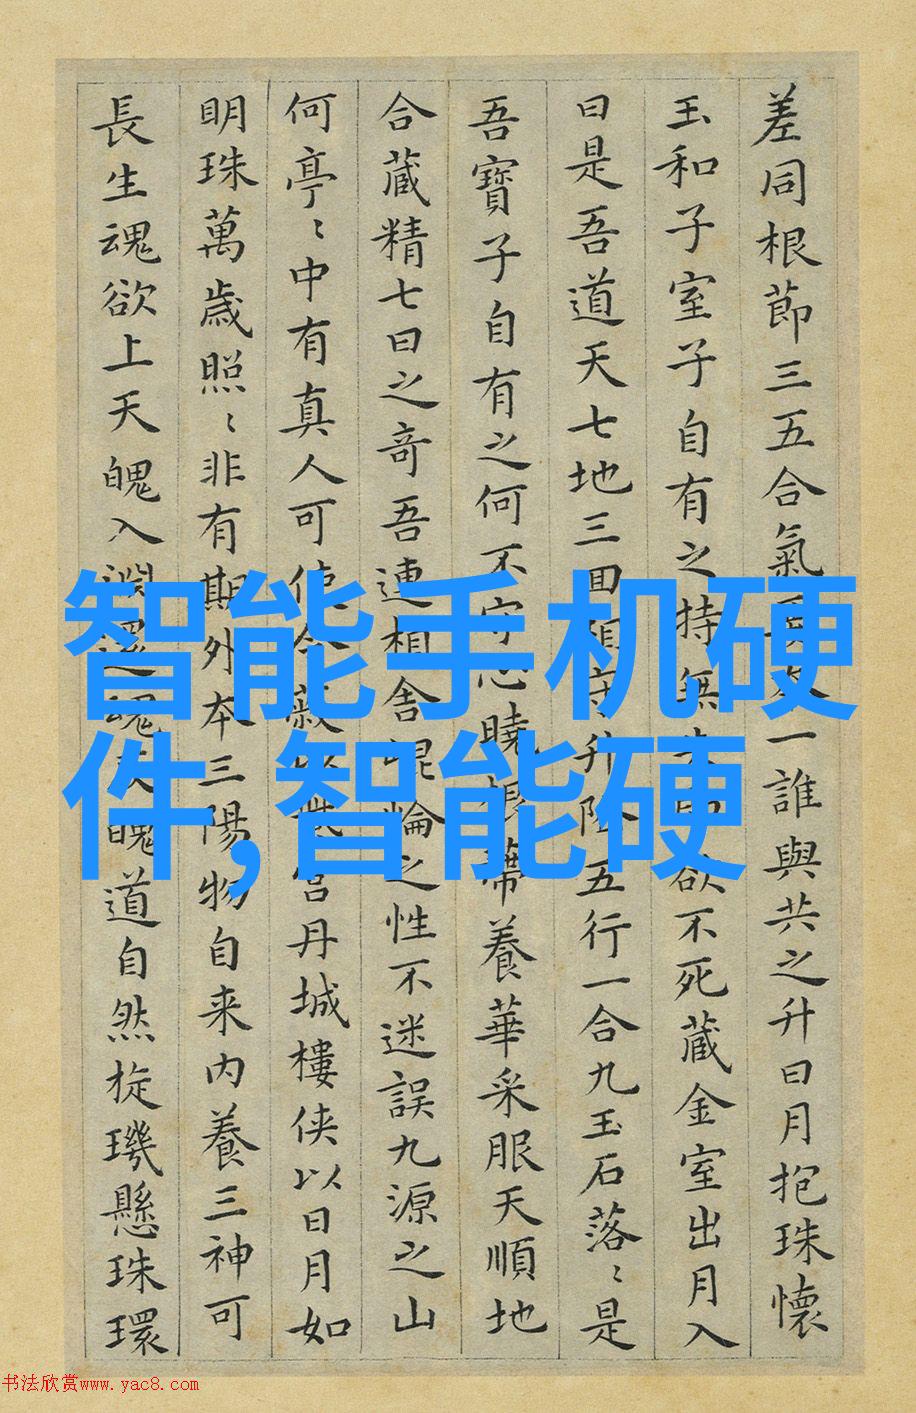 差同根節三五合氣一誰與共之升日月抱珠懷
玉和子室子自有之持無欲不死藏金室出月入
日是吾道天七地三回升五行一合九玉石落〻是
吾寶子自有之何不守心曉根蔕養華采服天順地
合藏精七日之奇吾連相舍崐崘之性不迷誤九源之山
何亭〻中有真人可使令蔽宮丹城樓俠以日月如
明珠萬歲照〻非有期外本三陽物自来內養三神可
長生魂欲上天魄入淵還魂魄道自然旋璣懸珠環
智能手机硬
件,智能硬
书法欣赏www.yac8.com